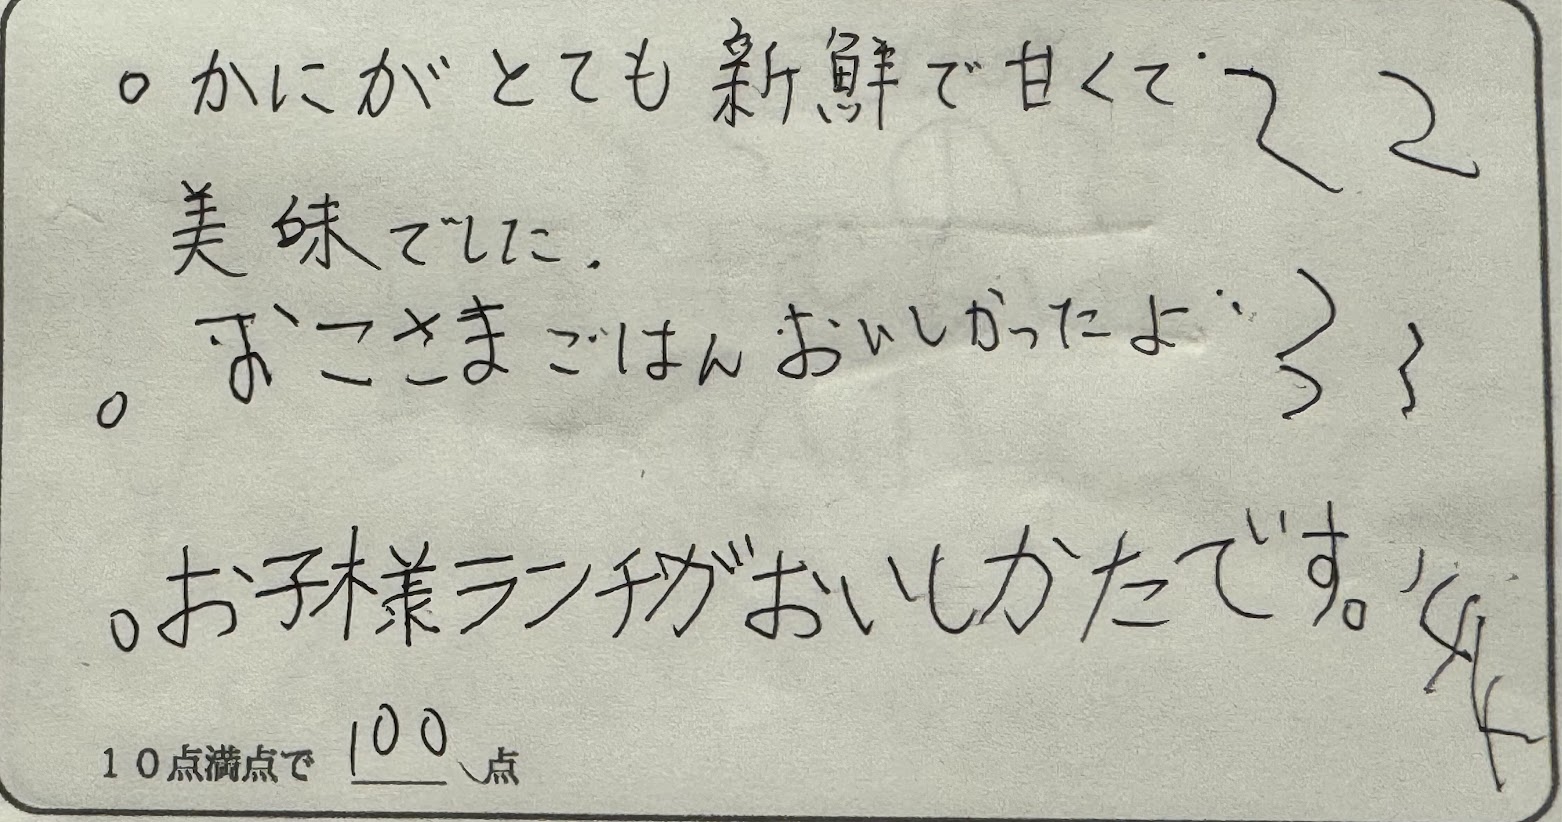 ○ かにがとても新鮮で甘くて
美味でした.
○ おこさまごはんおいしかったよ
○お子様ランチがおいしかたです。
10点満点で 100点